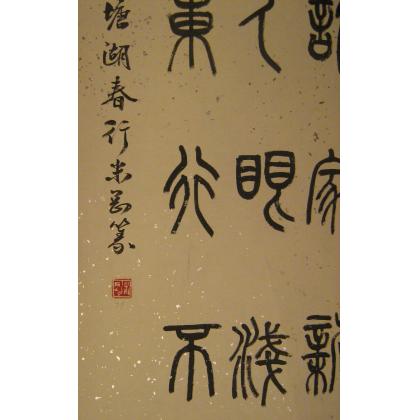 誰家新
人眼淺
東行不
塘湖春行篆